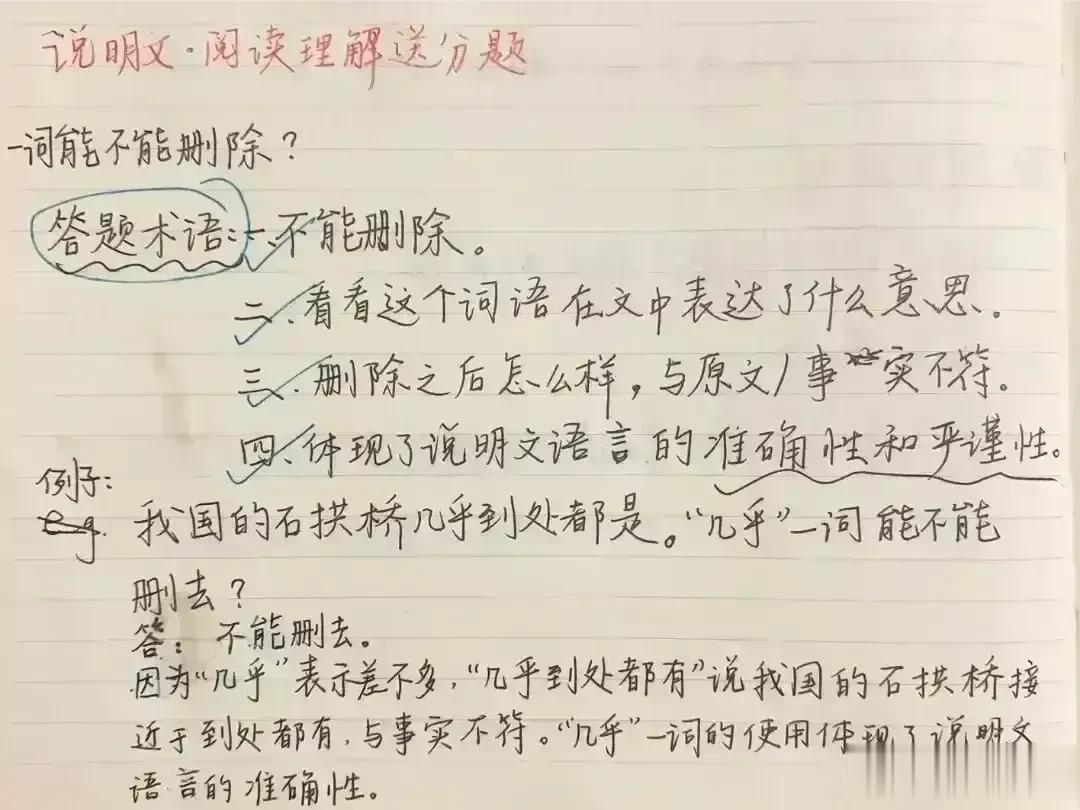 说明文·阅读理解送分题
一词能不能删除？
答题术语：一、不能删除。
二、看看这个词语在文中表达了什么意思。
三、删除之后怎么样，与原文/事实不符。
四、体现了说明文语言的准确性和严谨性。
例子：
e.g. 我国的石拱桥几乎到处都是。“几乎”一词能不能
删去？
答：不能删去。
因为“几乎”表示差不多，“几乎到处都有”说我国的石拱桥接
近于到处都有，与事实不符。“几乎”一词的使用体现了说明文
语言的准确性。